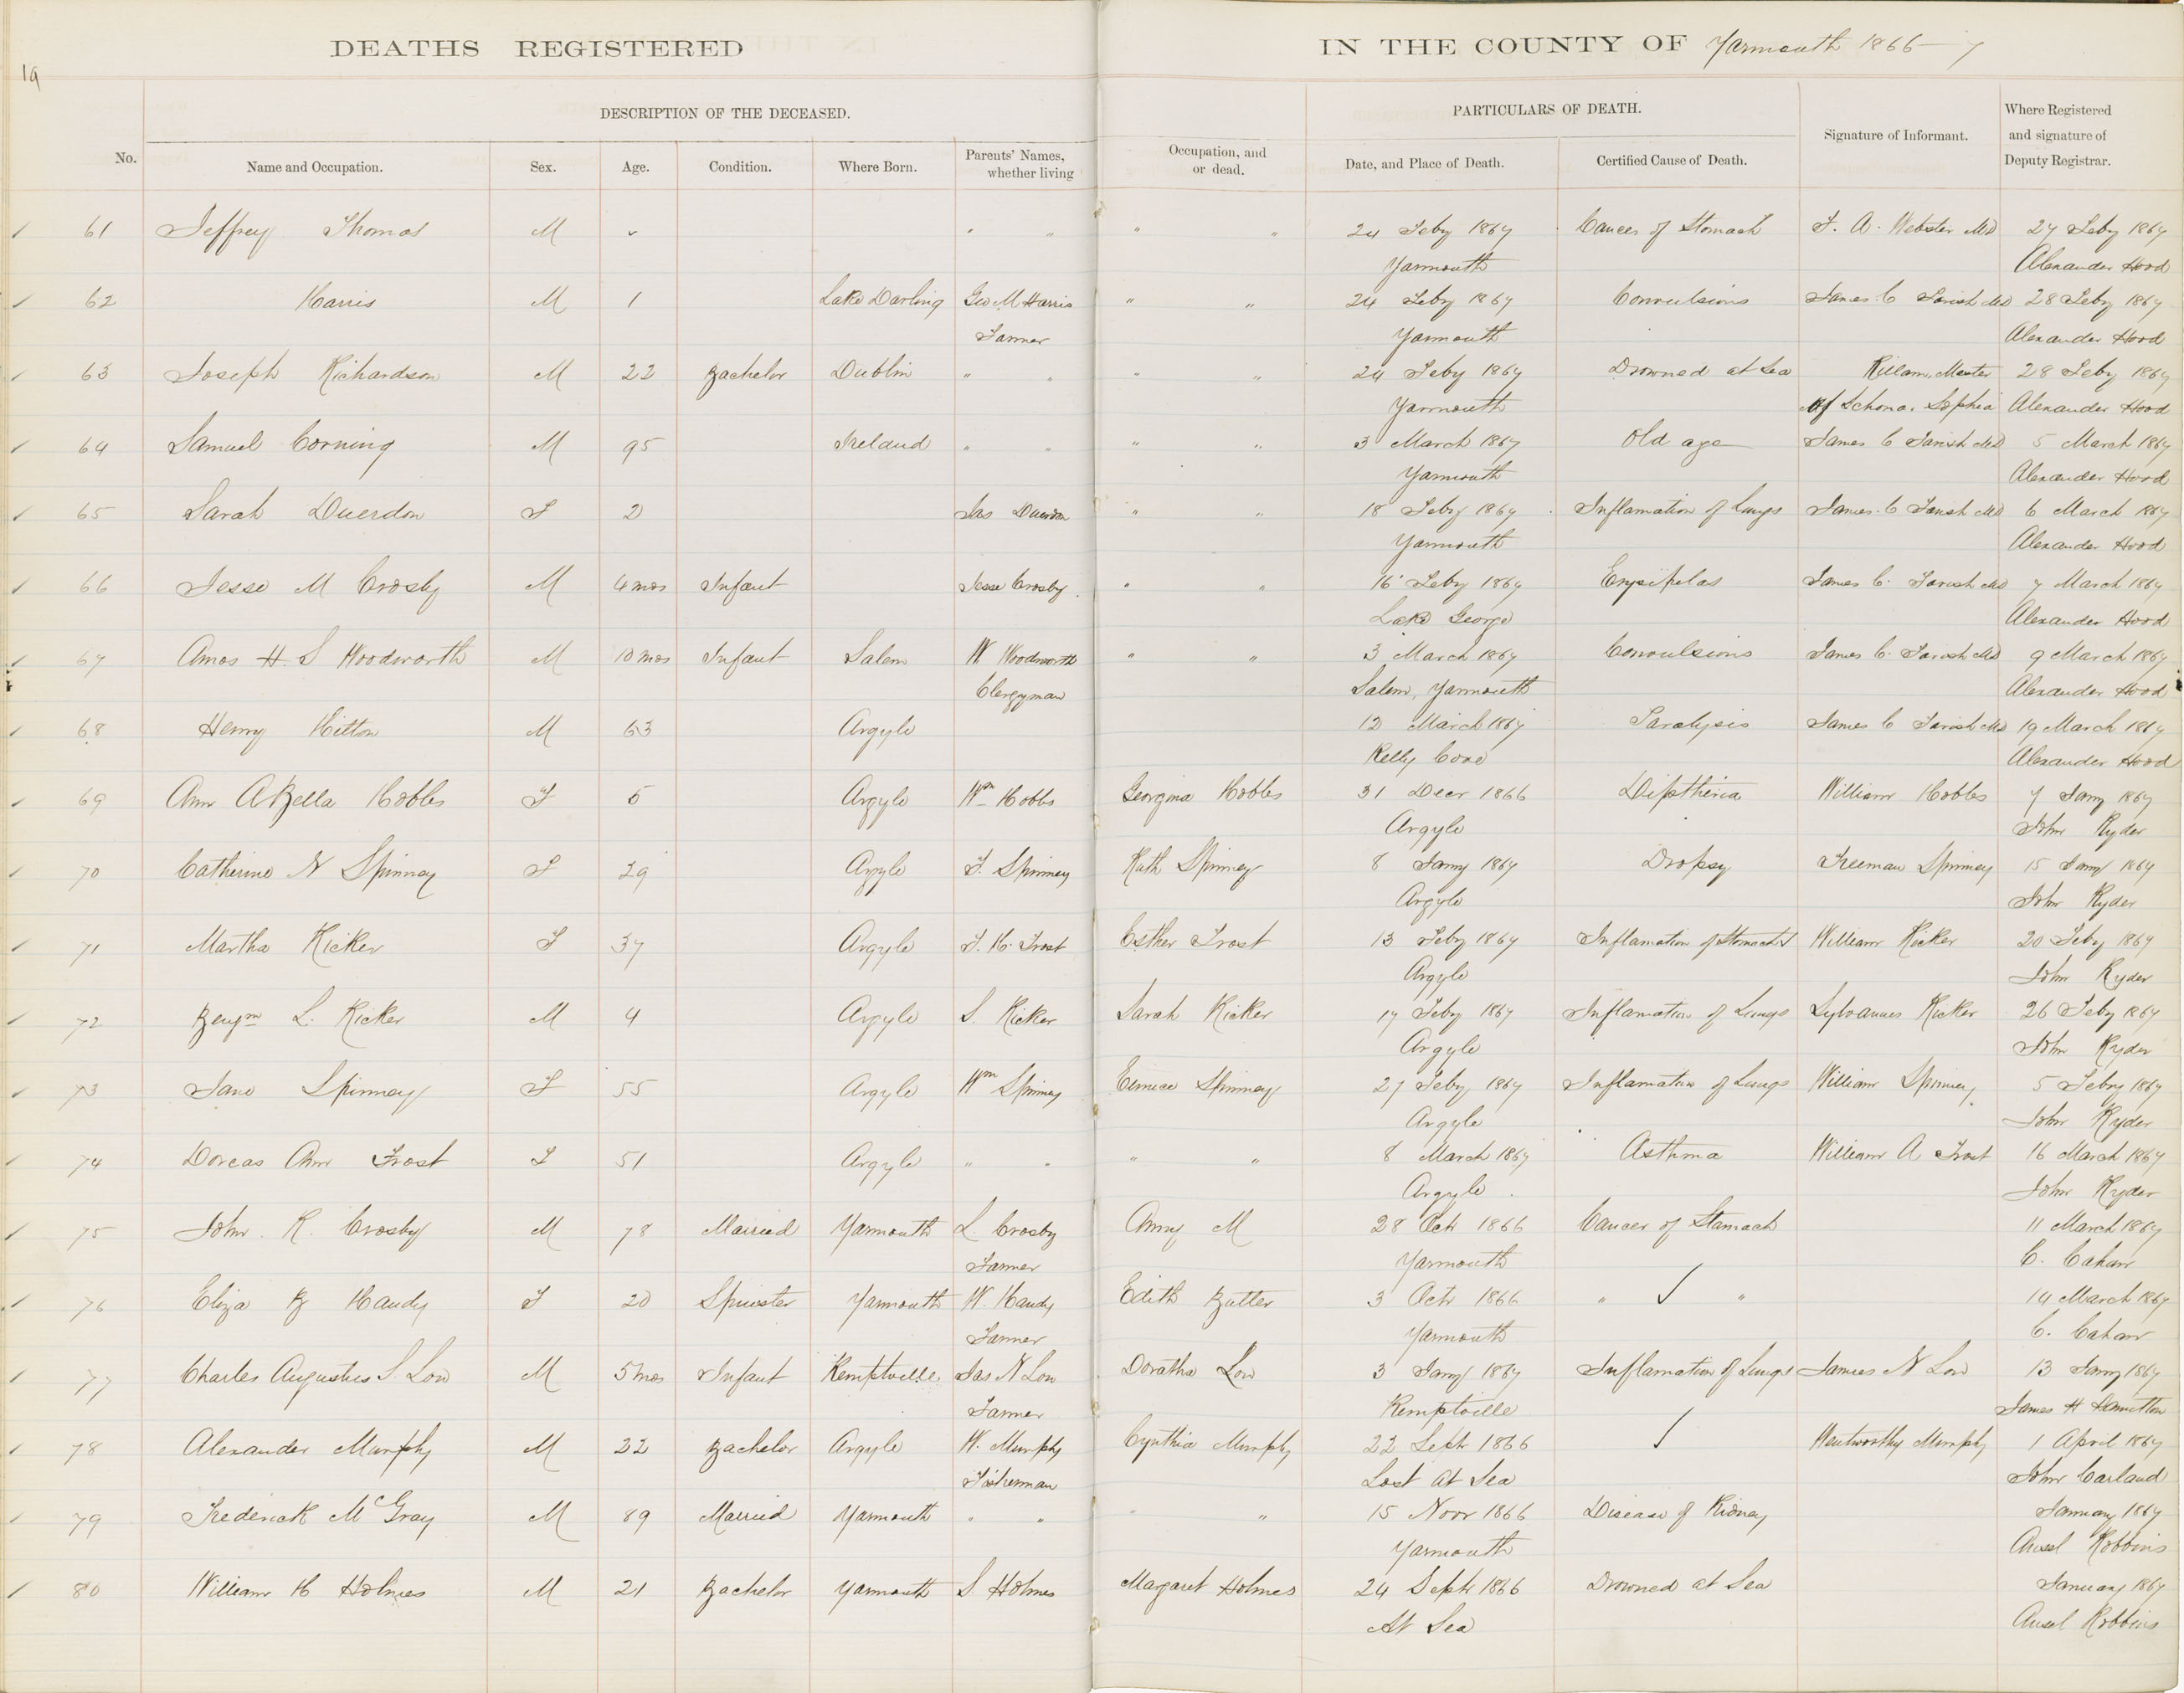 DEATHS REGISTERED IN THE COUNTY OF Yarmouth 1866-7
19
DESCRIPTION OF THE DECEASED. PARTICULARS OF DEATH.
No. Name and Occupation. Sex. Age. Condition. Where Born. Parents' Names, whether living Occupation, and or dead. Date, and Place of Death. Certified Cause of Death. Signature of Informant. Where Registered and signature of Deputy Registrar.
61 Jeffrey Thomas M " " " " 24 Feby 1867 Cancer of Stomach F. A. Webster MD 27 Feby 1867
Yarmouth Alexander Hood
62 Harris M 1 Lake Darling Geo M Harris " " 24 Feby 1867 Convulsions James C Farish MD 28 Feby 1867
Farmer Yarmouth Alexander Hood
63 Joseph Richardson M 22 Bachelor Dublin " " " " 24 Feby 1867 Drowned at Sea Killam, Master 28 Feby 1867
Yarmouth of Schonr. Sophia Alexander Hood
64 Samuel Corning M 95 Ireland " " " " 3 March 1867 Old age James C Farish MD 5 March 1867
Yarmouth Alexander Hood
65 Sarah Duerdon F 2 Jas Duerdon " " 18 Feby 1867 Inflamation of Lungs James C Farish MD 6 March 1867
Yarmouth Alexander Hood
66 Jesse M Crosby M 4 mos Infant Jesse Crosby " " 16 Feby 1867 Erysipelas James C. Farish MD 7 March 1867
Lake George Alexander Hood
67 Amos H. S Woodworth M 10 mos Infant Salem W Woodworth " " 3 March 1867 Convulsions James C. Farish MD 9 March 1867
Clergyman Salem, Yarmouth Alexander Hood
68 Henry Hilton M 63 Argyle 12 March 1867 Paralysis James C Farish MD 19 March 1867
Kelly Cove Alexander Hood
69 Ann ABella Hobbs F 5 Argyle Wm Hobbs Georgina Hobbs 31 Decr 1866 Diptheria William Hobbs 7 Jany 1867
Argyle John Ryder
70 Catherine N Spinney F 29 Argyle F. Spinney Ruth Spinney 8 Jany 1867 Dropsy Freeman Spinney 15 Jany 1867
Argyle John Ryder
71 Martha Ricker F 37 Argyle J. H. Frost Esther Frost 13 Feby 1867 Inflamation of Stomach William Ricker 20 Feby 1867
Argyle John Ryder
72 Benjm L. Ricker M 4 Argyle S. Ricker Sarah Ricker 17 Feby 1867 Inflamation of Lungs Sylvanus Ricker 26 Feby 1867
Argyle John Ryder
73 Jane Spinney F 55 Argyle Wm Spinney Eunice Spinney 27 Feby 1867 Inflamation of Lungs William Spinney 5 Feby 1867
Argyle John Ryder
74 Dorcas Ann Frost F 51 Argyle " " " " 8 March 1867 Asthma William A Frost 16 March 1867
Argyle John Ryder
75 John R. Crosby M 78 Married Yarmouth L Crosby Anny M 28 Octr 1866 Cancer of Stomach 11 March 1867
Farmer Yarmouth C. Cahan
76 Eliza B Handy F 20 Spinster Yarmouth W. Handy Edith Butler 3 Octr 1866 " ✓ " 14 March 1867
Farmer Yarmouth C. Cahan
77 Charles Augustus S. Low M 5 mos Infant Kemptville Jas N Low Doratha Low 3 Jany 1867 Inflamation of Lungs James N Low 13 Jany 1867
Farmer Kemptville James H Hamilton
78 Alexander Murphy M 22 Bachelor Argyle W. Murphy Cynthia Murphy 22 Septr 1866 ✓ Wentworthy Murphy 1 April 1867
Fisherman Lost at Sea John Carland
79 Frederick McGray M 89 Married Yarmouth " " " " 15 Novr 1866 Disease of Kidney January 1867
Yarmouth Ansel Robbins
80 William H Holmes M 21 Bachelor Yarmouth S Holmes Margaret Holmes 24 Septr 1866 Drowned at Sea January 1867
At Sea Ansel Robbins